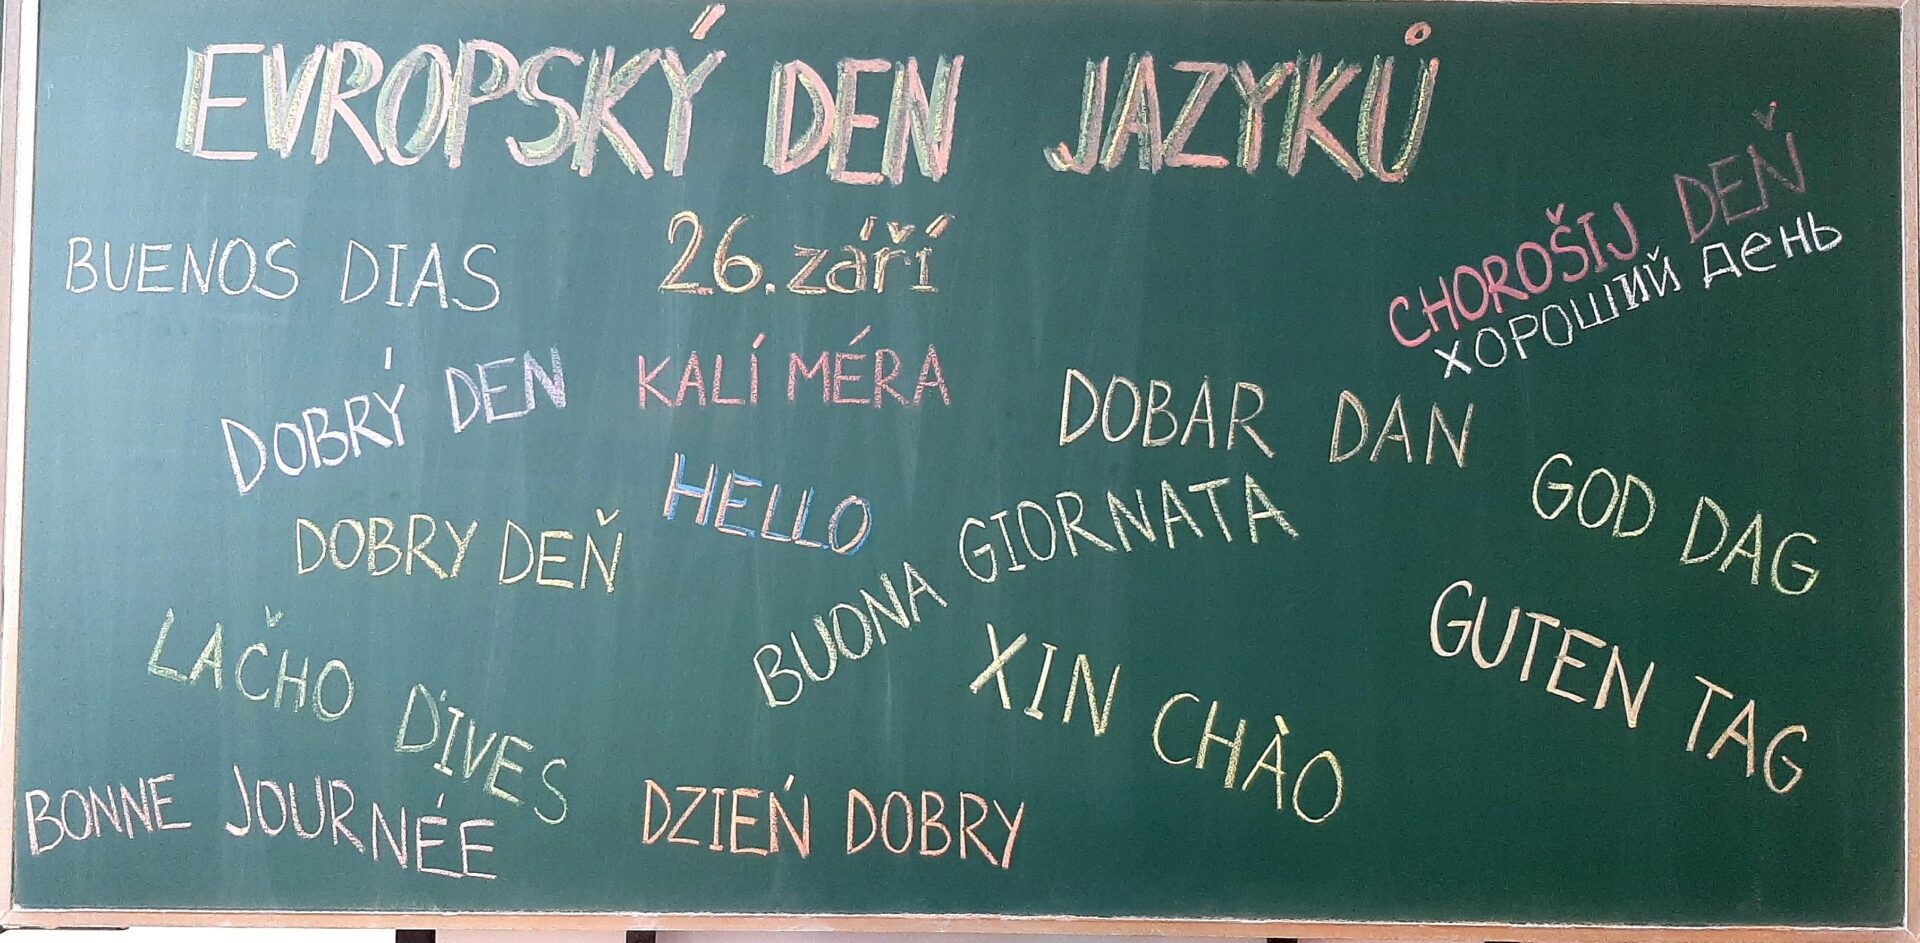 EVROPSKÝ DEN JAZYKŮ
26. září
BUENOS DIAS
CHOROŠIJ DEŇ
ХОРОШИЙ ДЕНЬ
DOBRÝ DEN
KALÍ MÉRA
DOBAR DAN
HELLO
GOD DAG
DOBRY DEŇ
BUONA GIORNATA
GUTEN TAG
LAČHO ĎIVES
XIN CHÀO
BONNE JOURNÉE
DZIEŃ DOBRY